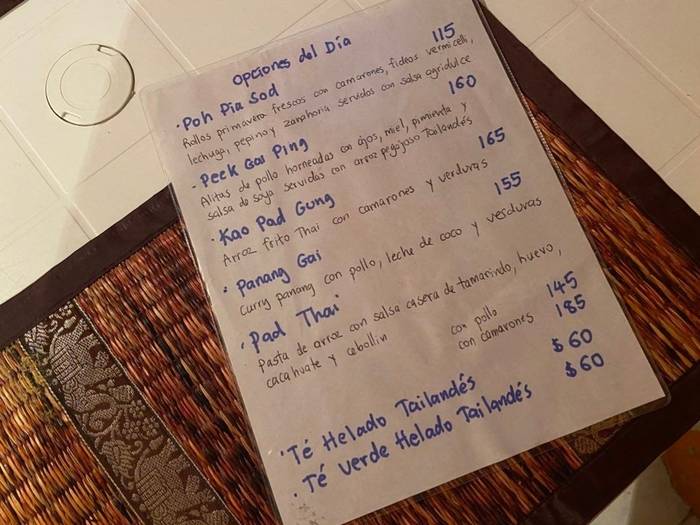 Opciones del Día
· Poh Pia Sod 115
Rollos primavera frescos con camarones, fideos vermicelli,
lechuga, pepino y zanahoria servidos con salsa agridulce
- Peek Gai Ping 160
Alitas de pollo horneadas con ajos, miel, pimienta y
salsa de soya servidas con arroz pegajoso Tailandés
· Kao Pad Gung 165
Arroz frito Thai con camarones y verduras
· Panang Gai 155
Curry panang con pollo, leche de coco y verduras
· Pad Thai
Pasta de arroz con salsa casera de tamarindo, huevo,
cacahuate y cebollin con pollo 145
con camarones 185
· Té Helado Tailandés $60
· Té verde Helado Tailandés $60